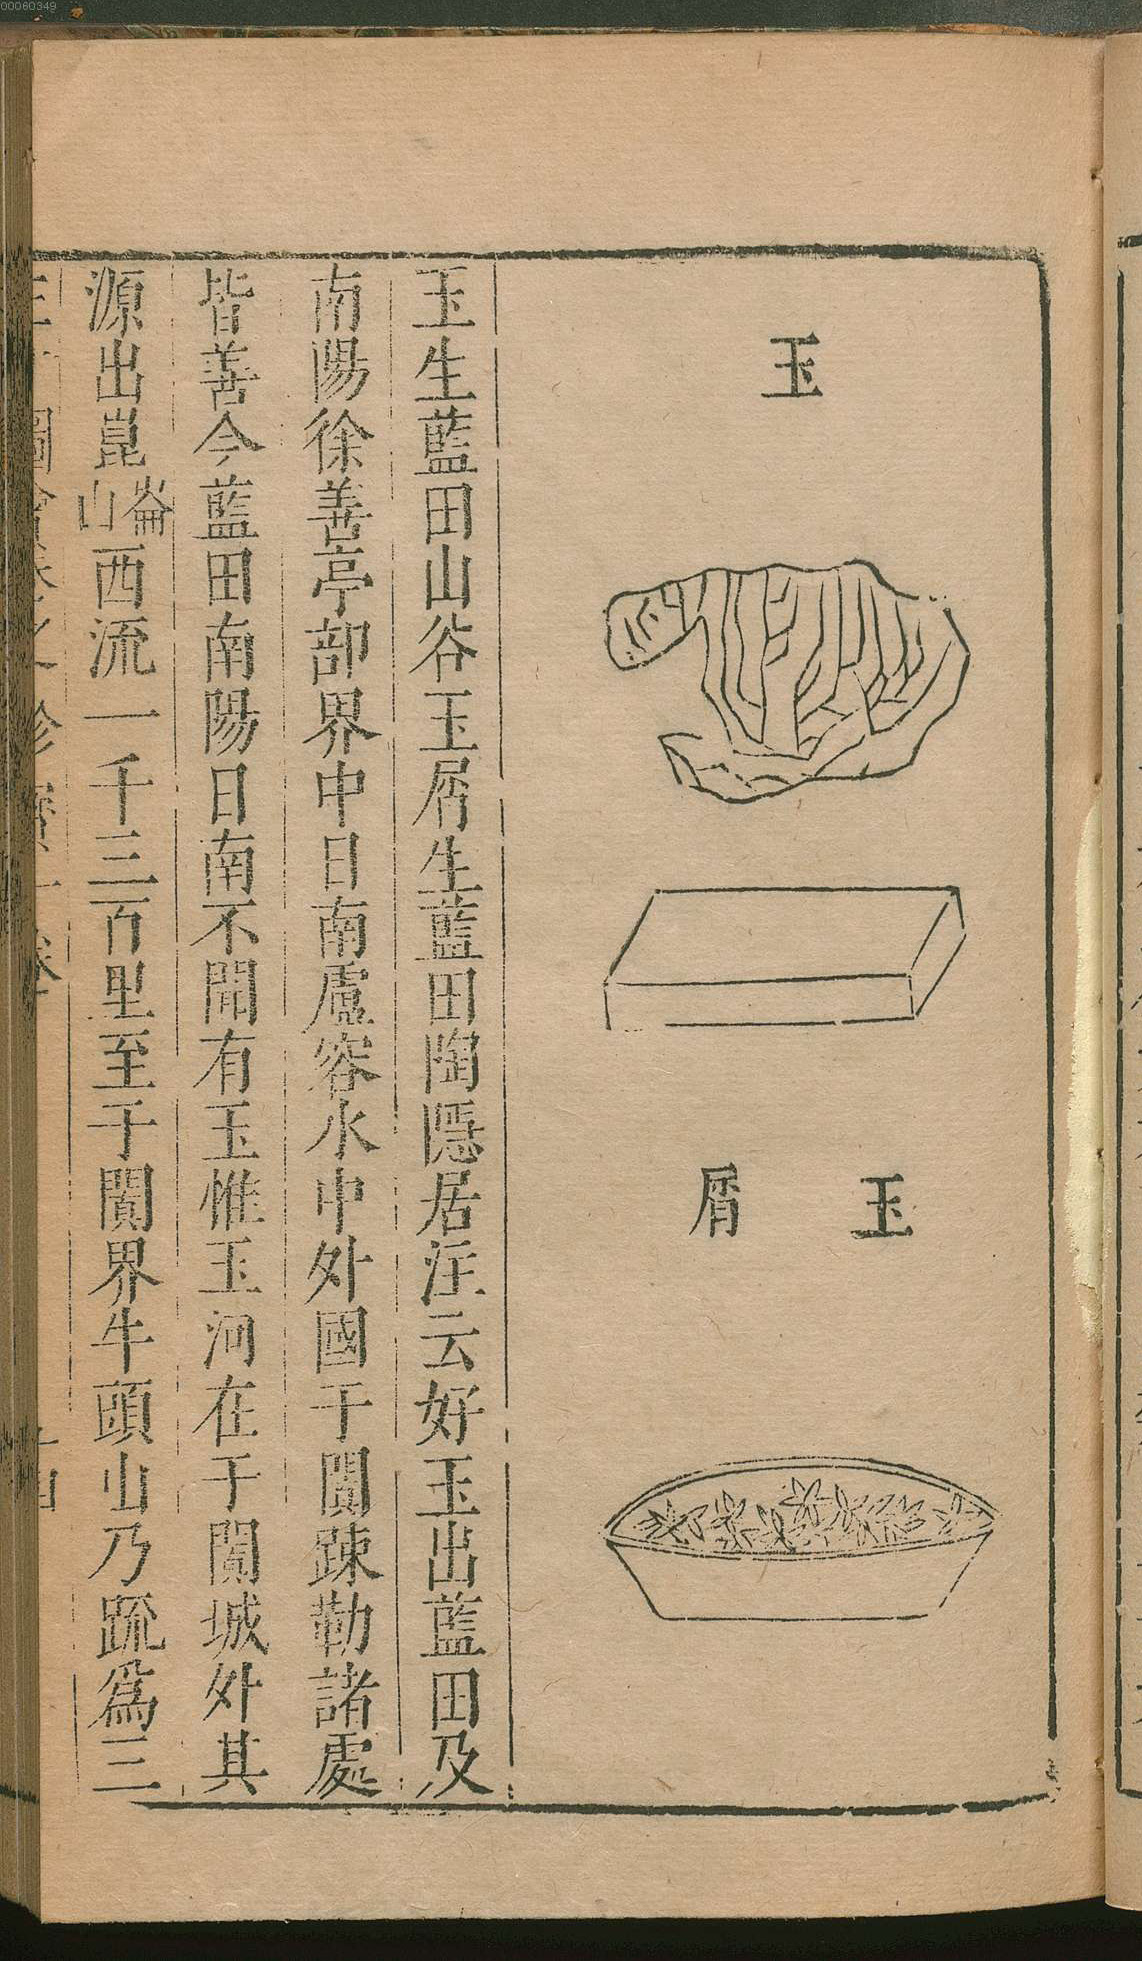 玉
玉屑
玉生藍田山谷玉屑生藍田陶隱居注云好玉出藍田及
南陽徐善亭部界中日南盧容水中外國于闐踈勒諸處
皆善今藍田南陽日南不聞有玉惟玉河在于闐城外其
源出崑崙山西流一千三百里至于闐界牛頭山乃䟽爲三
00060349